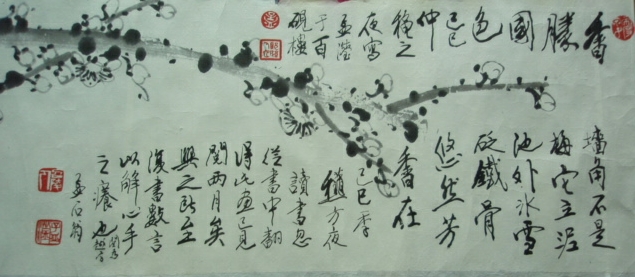 香
勝
國
色
己巳
仲
穐之
夜寫
孟陸
于百
硯樓
墙角不是
梅它立泥
池外冰雪
砭鐵骨
悠然芳
香在
己巳季
穐方夜
讀書忽
從書中翻
得此畫已見
閱兩月矣
興之所至
復書數言
以解心手
之癢也
孟石翁